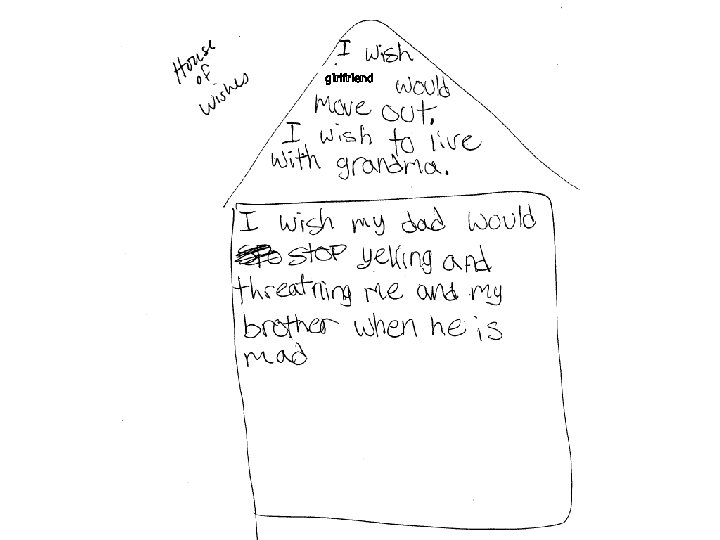 House
of
Wishes
I wish
girlfriend would
move out.
I wish to live
with grandma.
I wish my dad would
stop yelling and
threatning me and my
brother when he is
mad